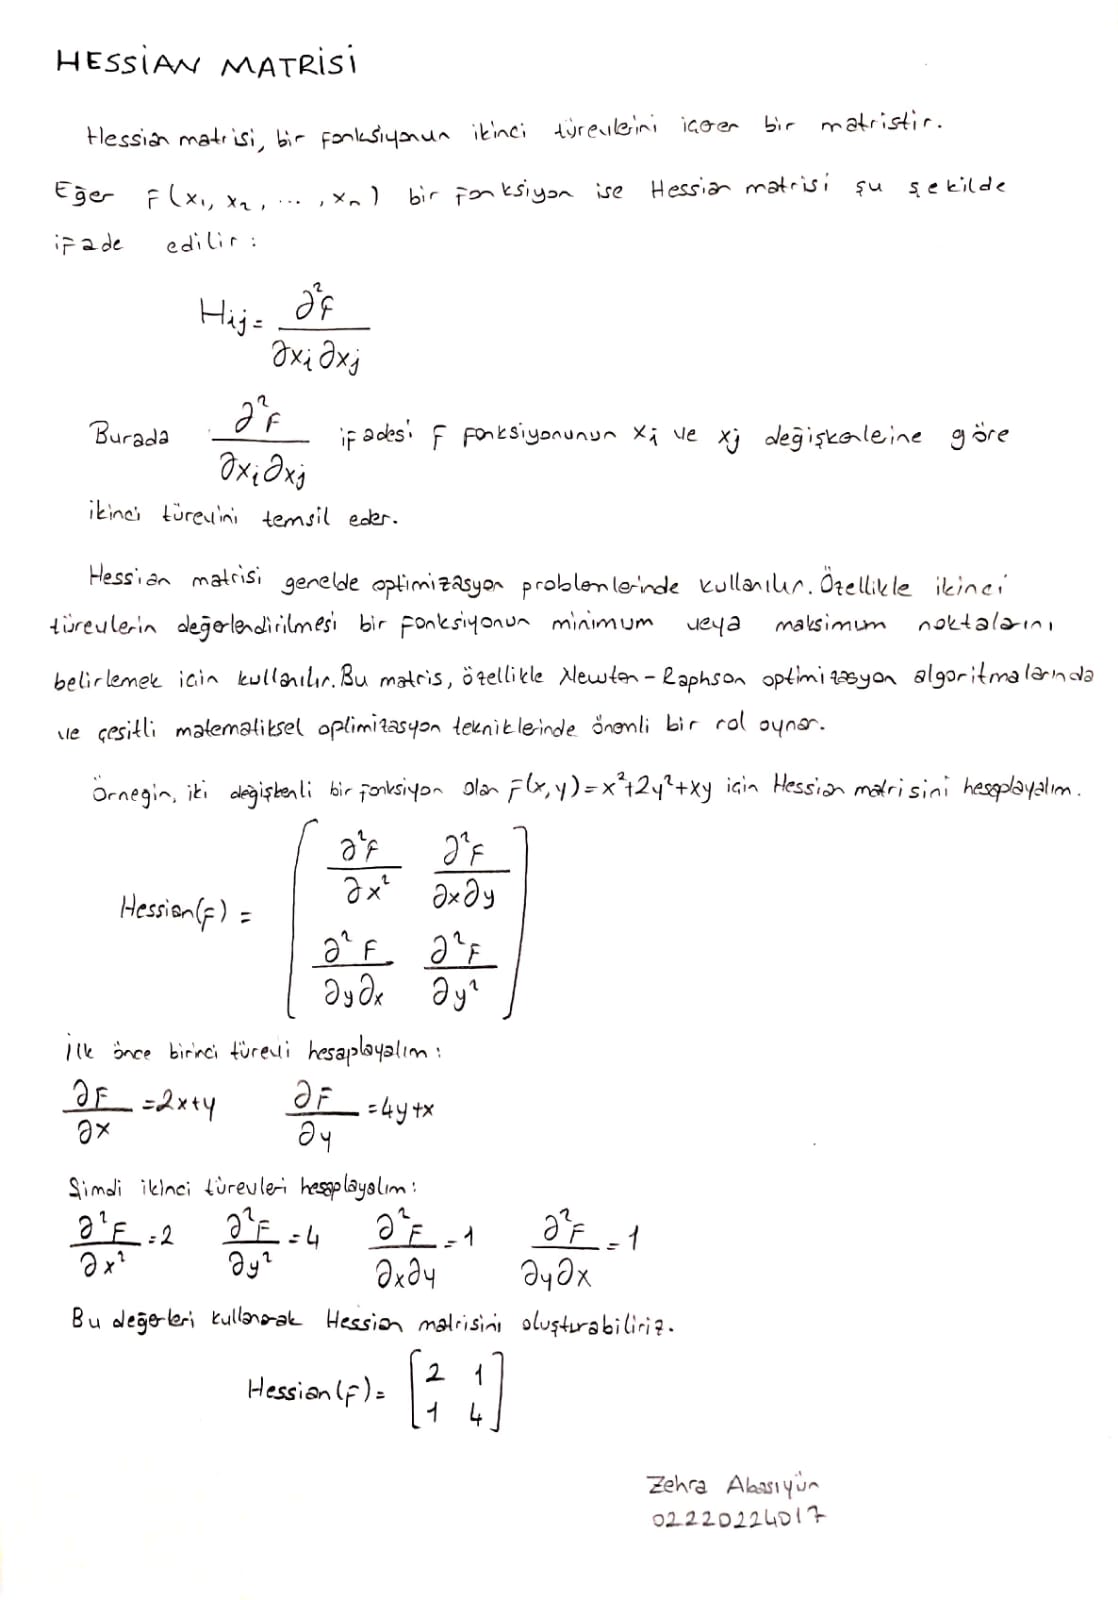 HESSİAN MATRİSİ
Hessian matrisi, bir fonksiyonun ikinci türevlerini içeren bir matristir.
Eğer F(x₁, x₂, ..., xₙ) bir fonksiyon ise Hessian matrisi şu şekilde
ifade edilir:
Hij = ∂²F / ∂xi ∂xj
Burada ∂²F / ∂xi ∂xj ifadesi F fonksiyonunun xi ve xj değişkenleine göre
ikinci türevini temsil eder.
Hessian matrisi genelde optimizasyon problemlerinde kullanılır. Özellikle ikinci
türevlerin değerlendirilmesi bir fonksiyonun minimum veya maksimum noktalarını
belirlemek için kullanılır. Bu matris, özellikle Newton-Raphson optimizasyon algoritmalarında
ve çeşitli matematiksel optimizasyon tekniklerinde önemli bir rol oynar.
Örneğin, iki değişkenli bir fonksiyon olan F(x,y)=x²+2y²+xy için Hessian matrisini hesaplayalım.
Hessian(F) = [ ∂²F/∂x² ∂²F/∂x∂y
∂²F/∂y∂x ∂²F/∂y² ]
İlk önce birinci türevi hesaplayalım:
∂F/∂x =2x+y ∂F/∂y =4y+x
Şimdi ikinci türevleri hesaplayalım:
∂²F/∂x² =2 ∂²F/∂y² =4 ∂²F/∂x∂y =1 ∂²F/∂y∂x =1
Bu değerleri kullanarak Hessian matrisini oluşturabiliriz.
Hessian(F)= [ 2 1
1 4 ]
Zehra Abasıyün
02220224017